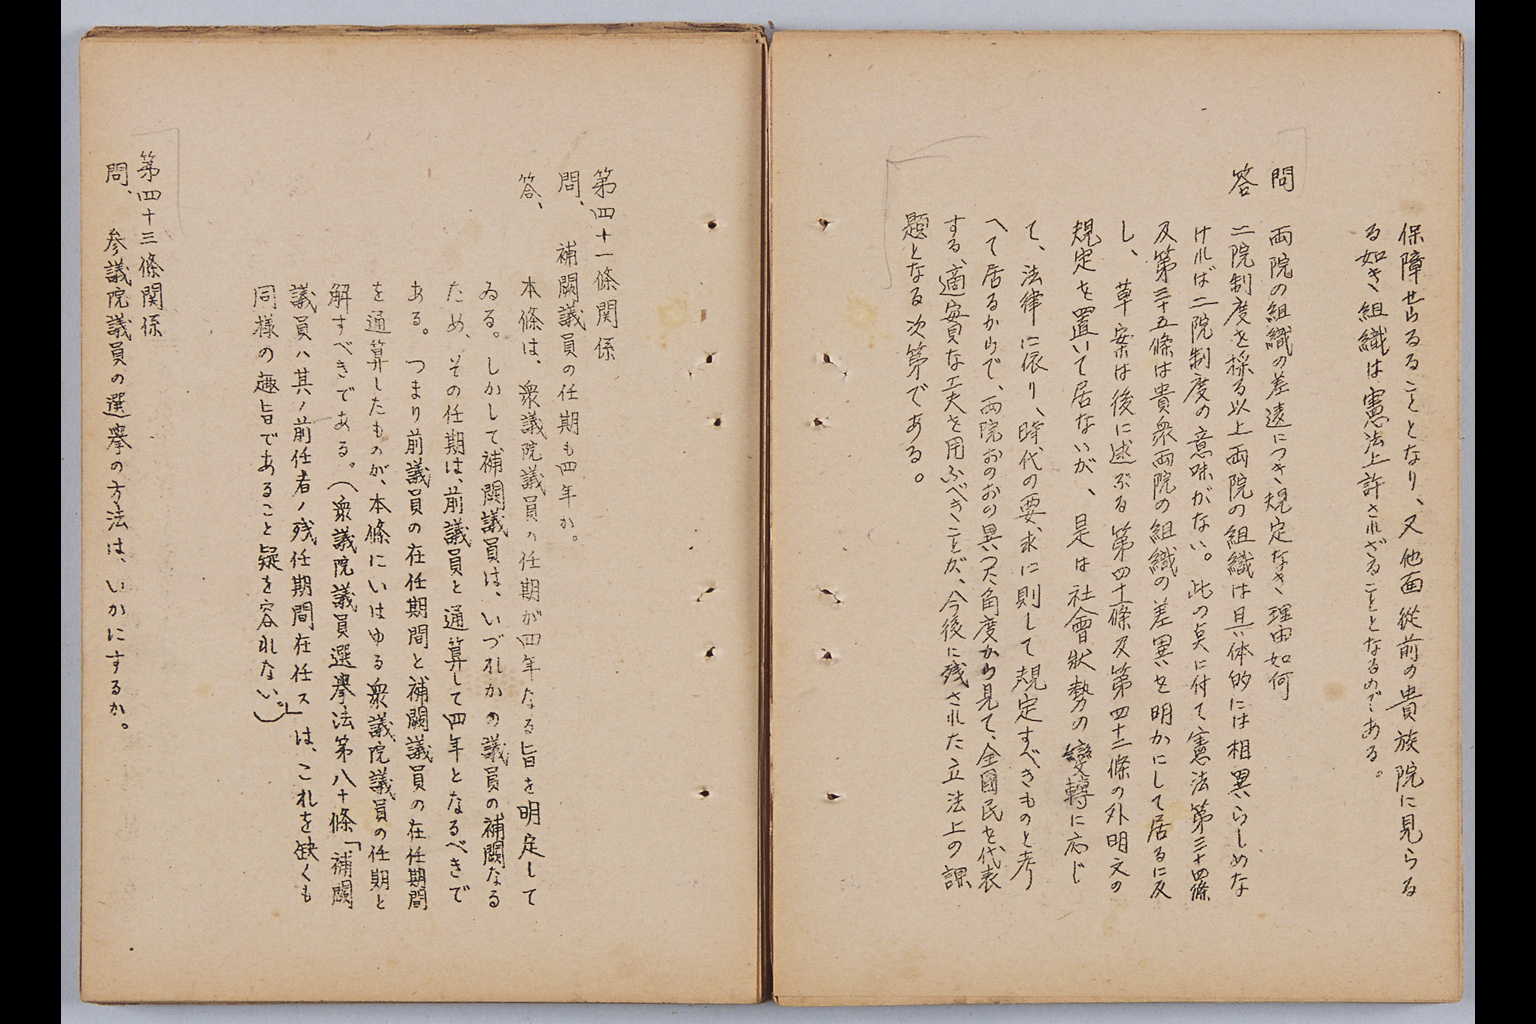 保障せらるることとなり、又他面從前の貴族院に見らる
る如き組織は憲法上許されざることとなるのである。
問　両院の組織の差違につき規定なき理由如何
答　二院制度を採る以上両院の組織は具体的には相異らしめな
ければ二院制度の意味がない。此の点に付て憲法第三十四條
及第三十五條は貴衆両院の組織の差異を明かにして居るに反
し、草案は後に述ぶる第四十條及第四十二條の外明文の
規定を置いて居ないが、是は社會狀勢の變轉に応じ
て、法律に依り、時代の要求に則して規定すべきものと考
へて居るからで、両院おのおの異つた角度から見て、全國民を代表
する、適妥な工夫を用ふべきことが、今後に残された立法上の課
題となる次第である。
第四十一條関係
問、補闕議員の任期も四年か。
答、本條は、衆議院議員の任期が四年なる旨を明定して
ゐる。しかして補闕議員は、いづれかの議員の補闕なる
ため、その任期は、前議員と通算して四年となるべきで
ある。つまり前議員の在任期間と補闕議員の在任期間
を通算したものが、本條にいはゆる衆議院議員の任期と
解すべきである。（衆議院議員選擧法第八十條「補闕
議員ハ其ノ前任者ノ残任期間在任ス」は、これを欠くも
同様の趣旨であること疑を容れない。）
第四十三條関係
問、参議院議員の選擧の方法は、いかにするか。